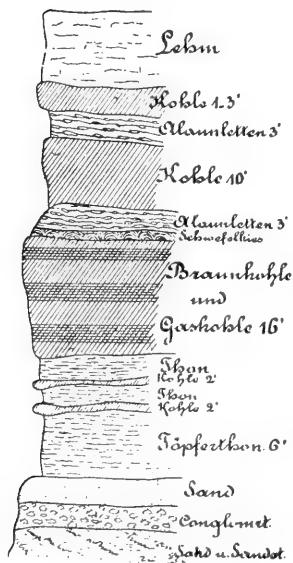 Lehm
Kohle 1-3'
Alaunletten 3'
Kohle 10'
Alaunletten 3'
Schwefelkies
Braunkohle
und
Gaskohle 16'
Thon
Kohle 2'
Thon
Kohle 2'
Töpferthon 6'
Sand
Conglomet.
Sand u. Sandst.